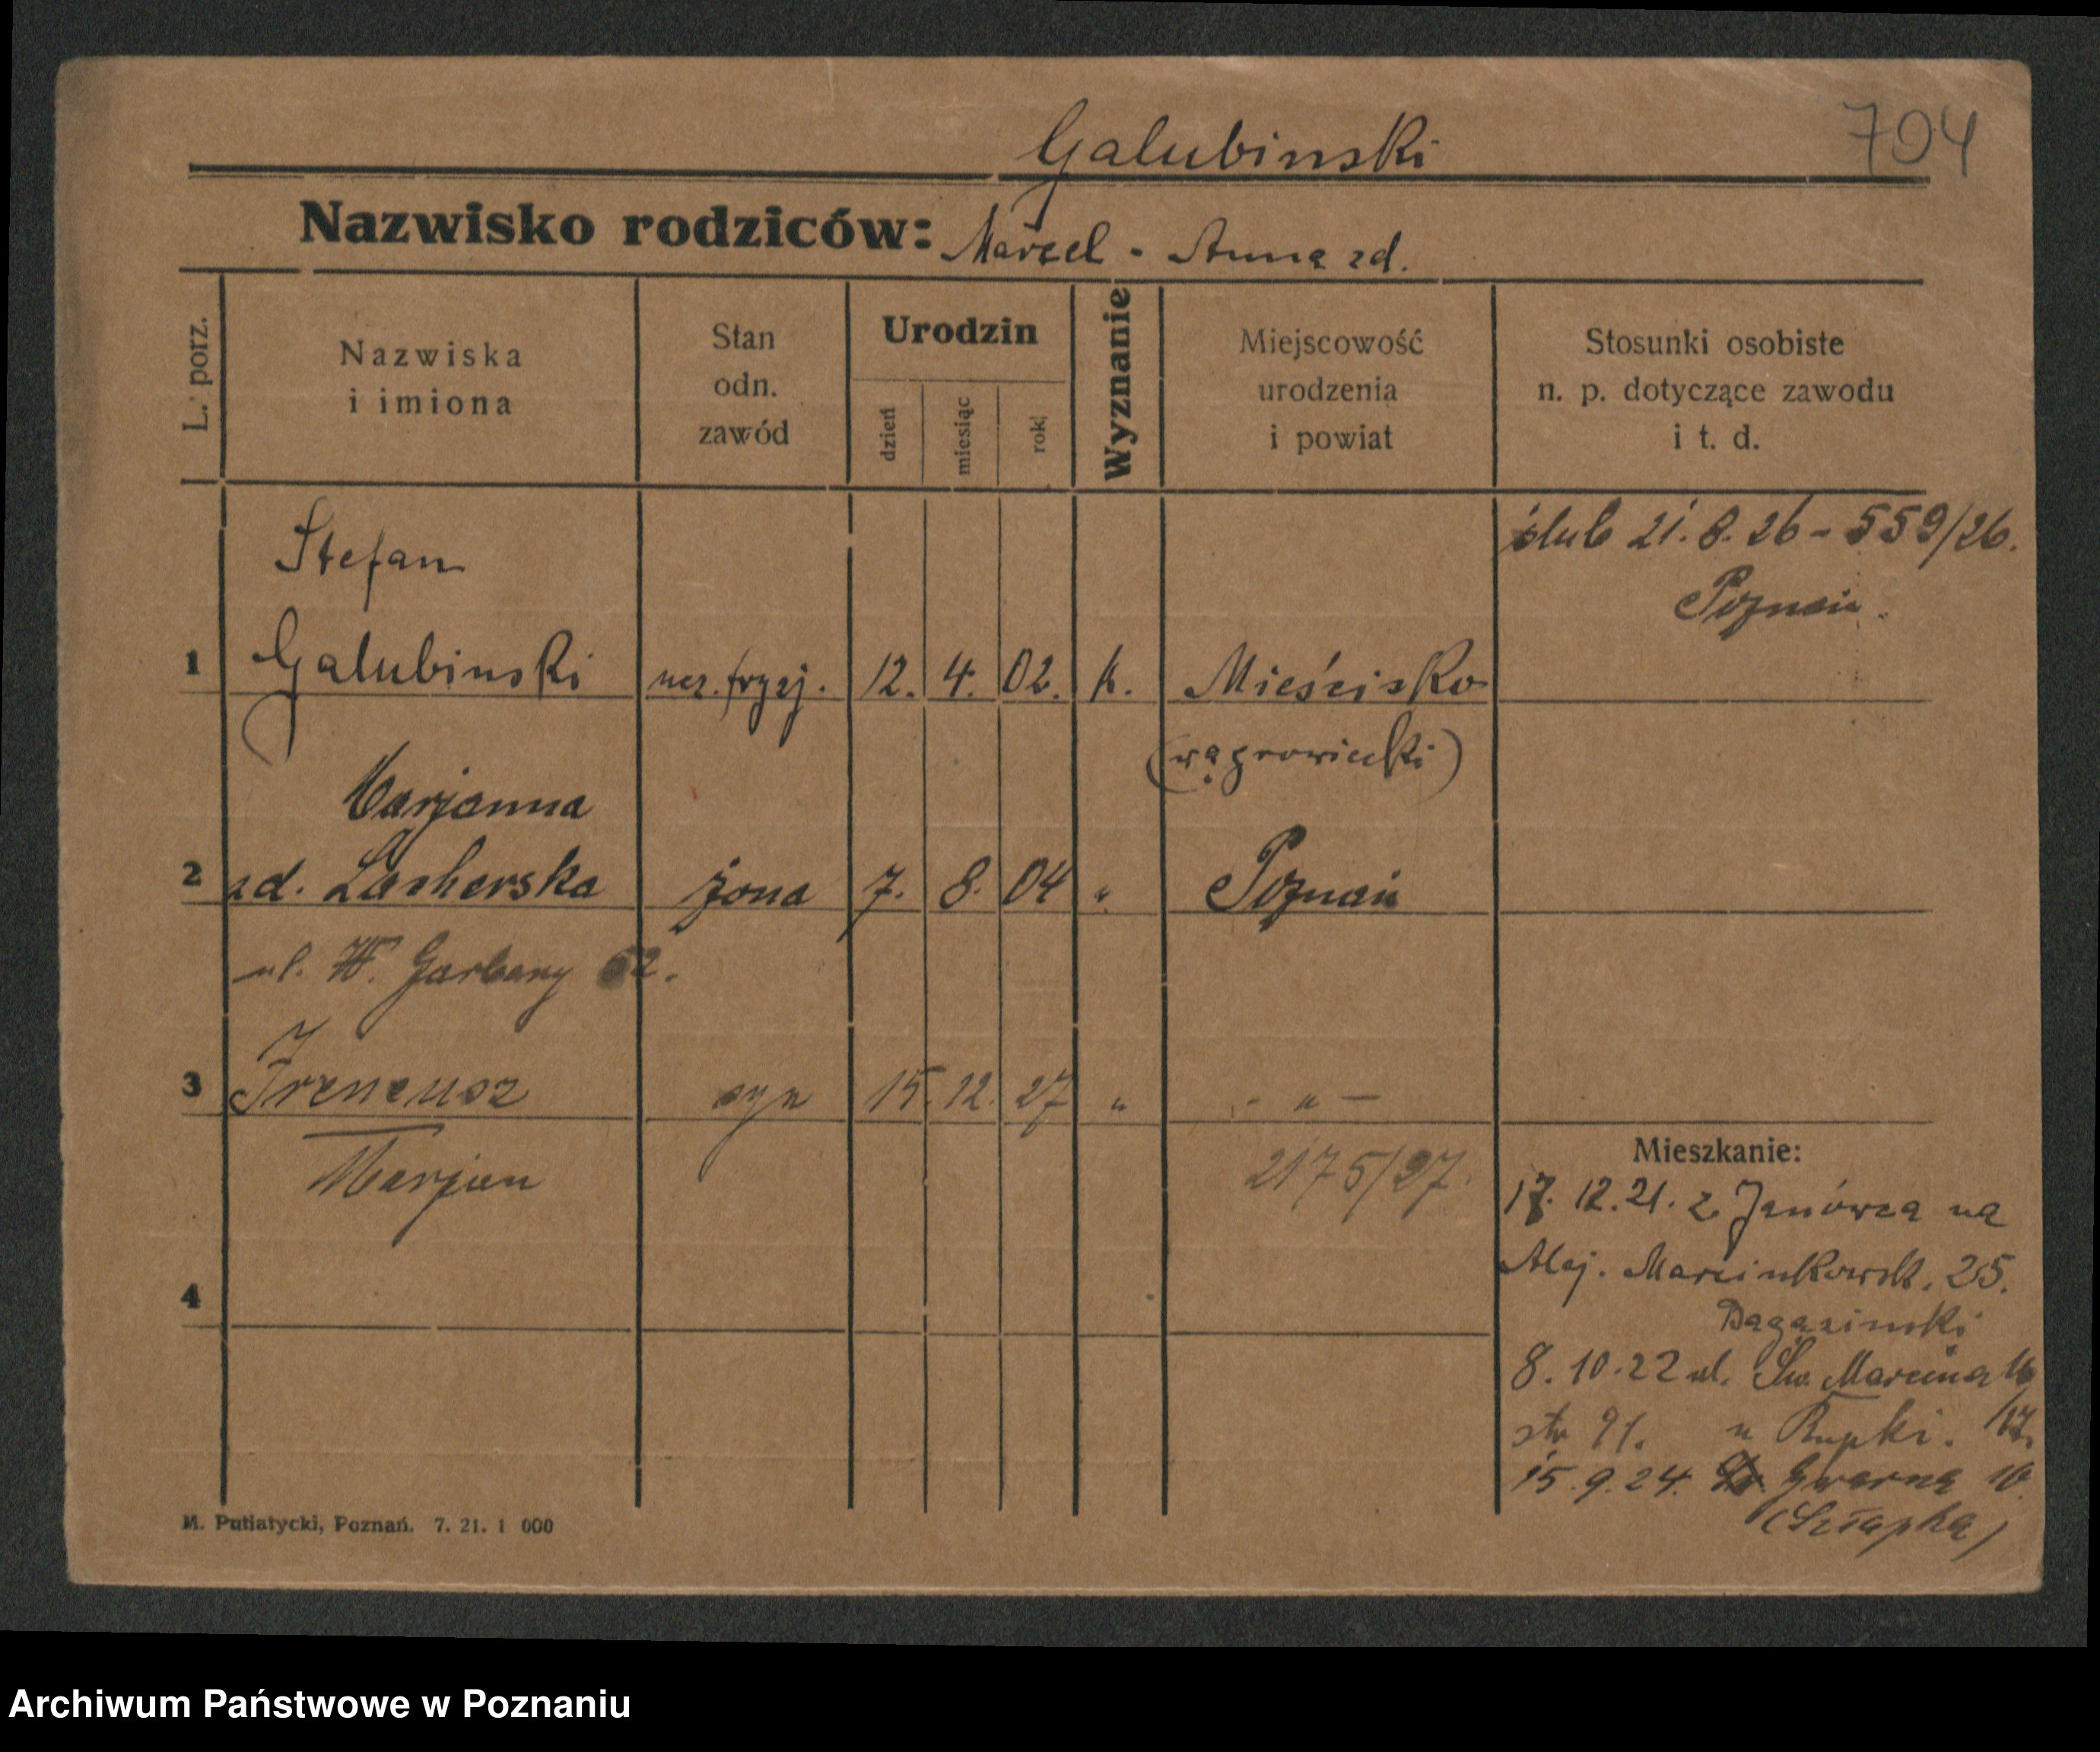 704
Galubinski
Nazwisko rodziców: Marcel - Anna zd.
L. porz.
Nazwiska i imiona
Stan odn. zawód
Urodzin
dzień
miesiąc
rok
Wyznanie
Miejscowość urodzenia i powiat
Stosunki osobiste n. p. dotyczące zawodu i t. d.
ślub 21. 8. 26 - 559/26.
Poznań.
Stefan
1 Galubinski ucz. fryzj. 12. 4. 02. k. Mieścisko
(wągrowiecki)
Marjanna
2 zd. Zacherska żona 7. 8. 04 " Poznań
ul. W. Garbary 52.
3 Ireneusz syn 15. 12. 27 " - " -
Marjan
2175/27.
4
Mieszkanie:
17. 12. 21. z Janówca na
Alej. Marcinkowsk. 25.
8. 10. 22 ul. Św. Marcina 16
/17.
str 91. u Rupki.
15. 9. 24. Gwarna 10
(Szłapka)
M. Putiatycki, Poznań. 7. 21. 1 000
Archiwum Państwowe w Poznaniu